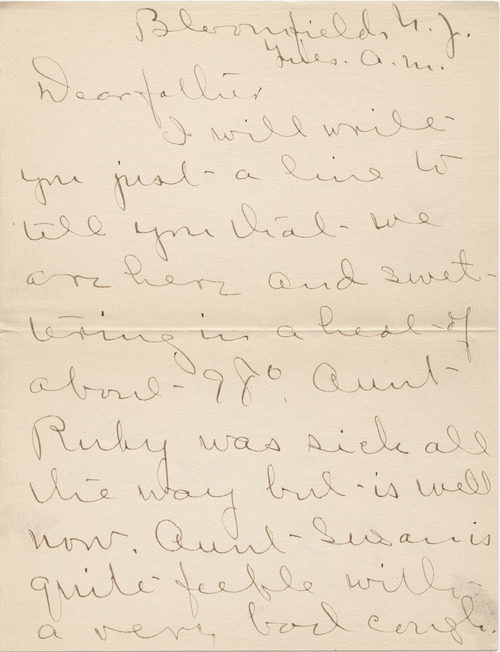 Bloomfield, N.J.
Tues. A.M.
Dear father
I will write
you just a line to
tell you that we
are here and swel-
tering in a heat of
about 98°. Aunt
Ruby was sick all
the way but is well
now. Aunt Susan is
quite feeble with
a very bad cough.